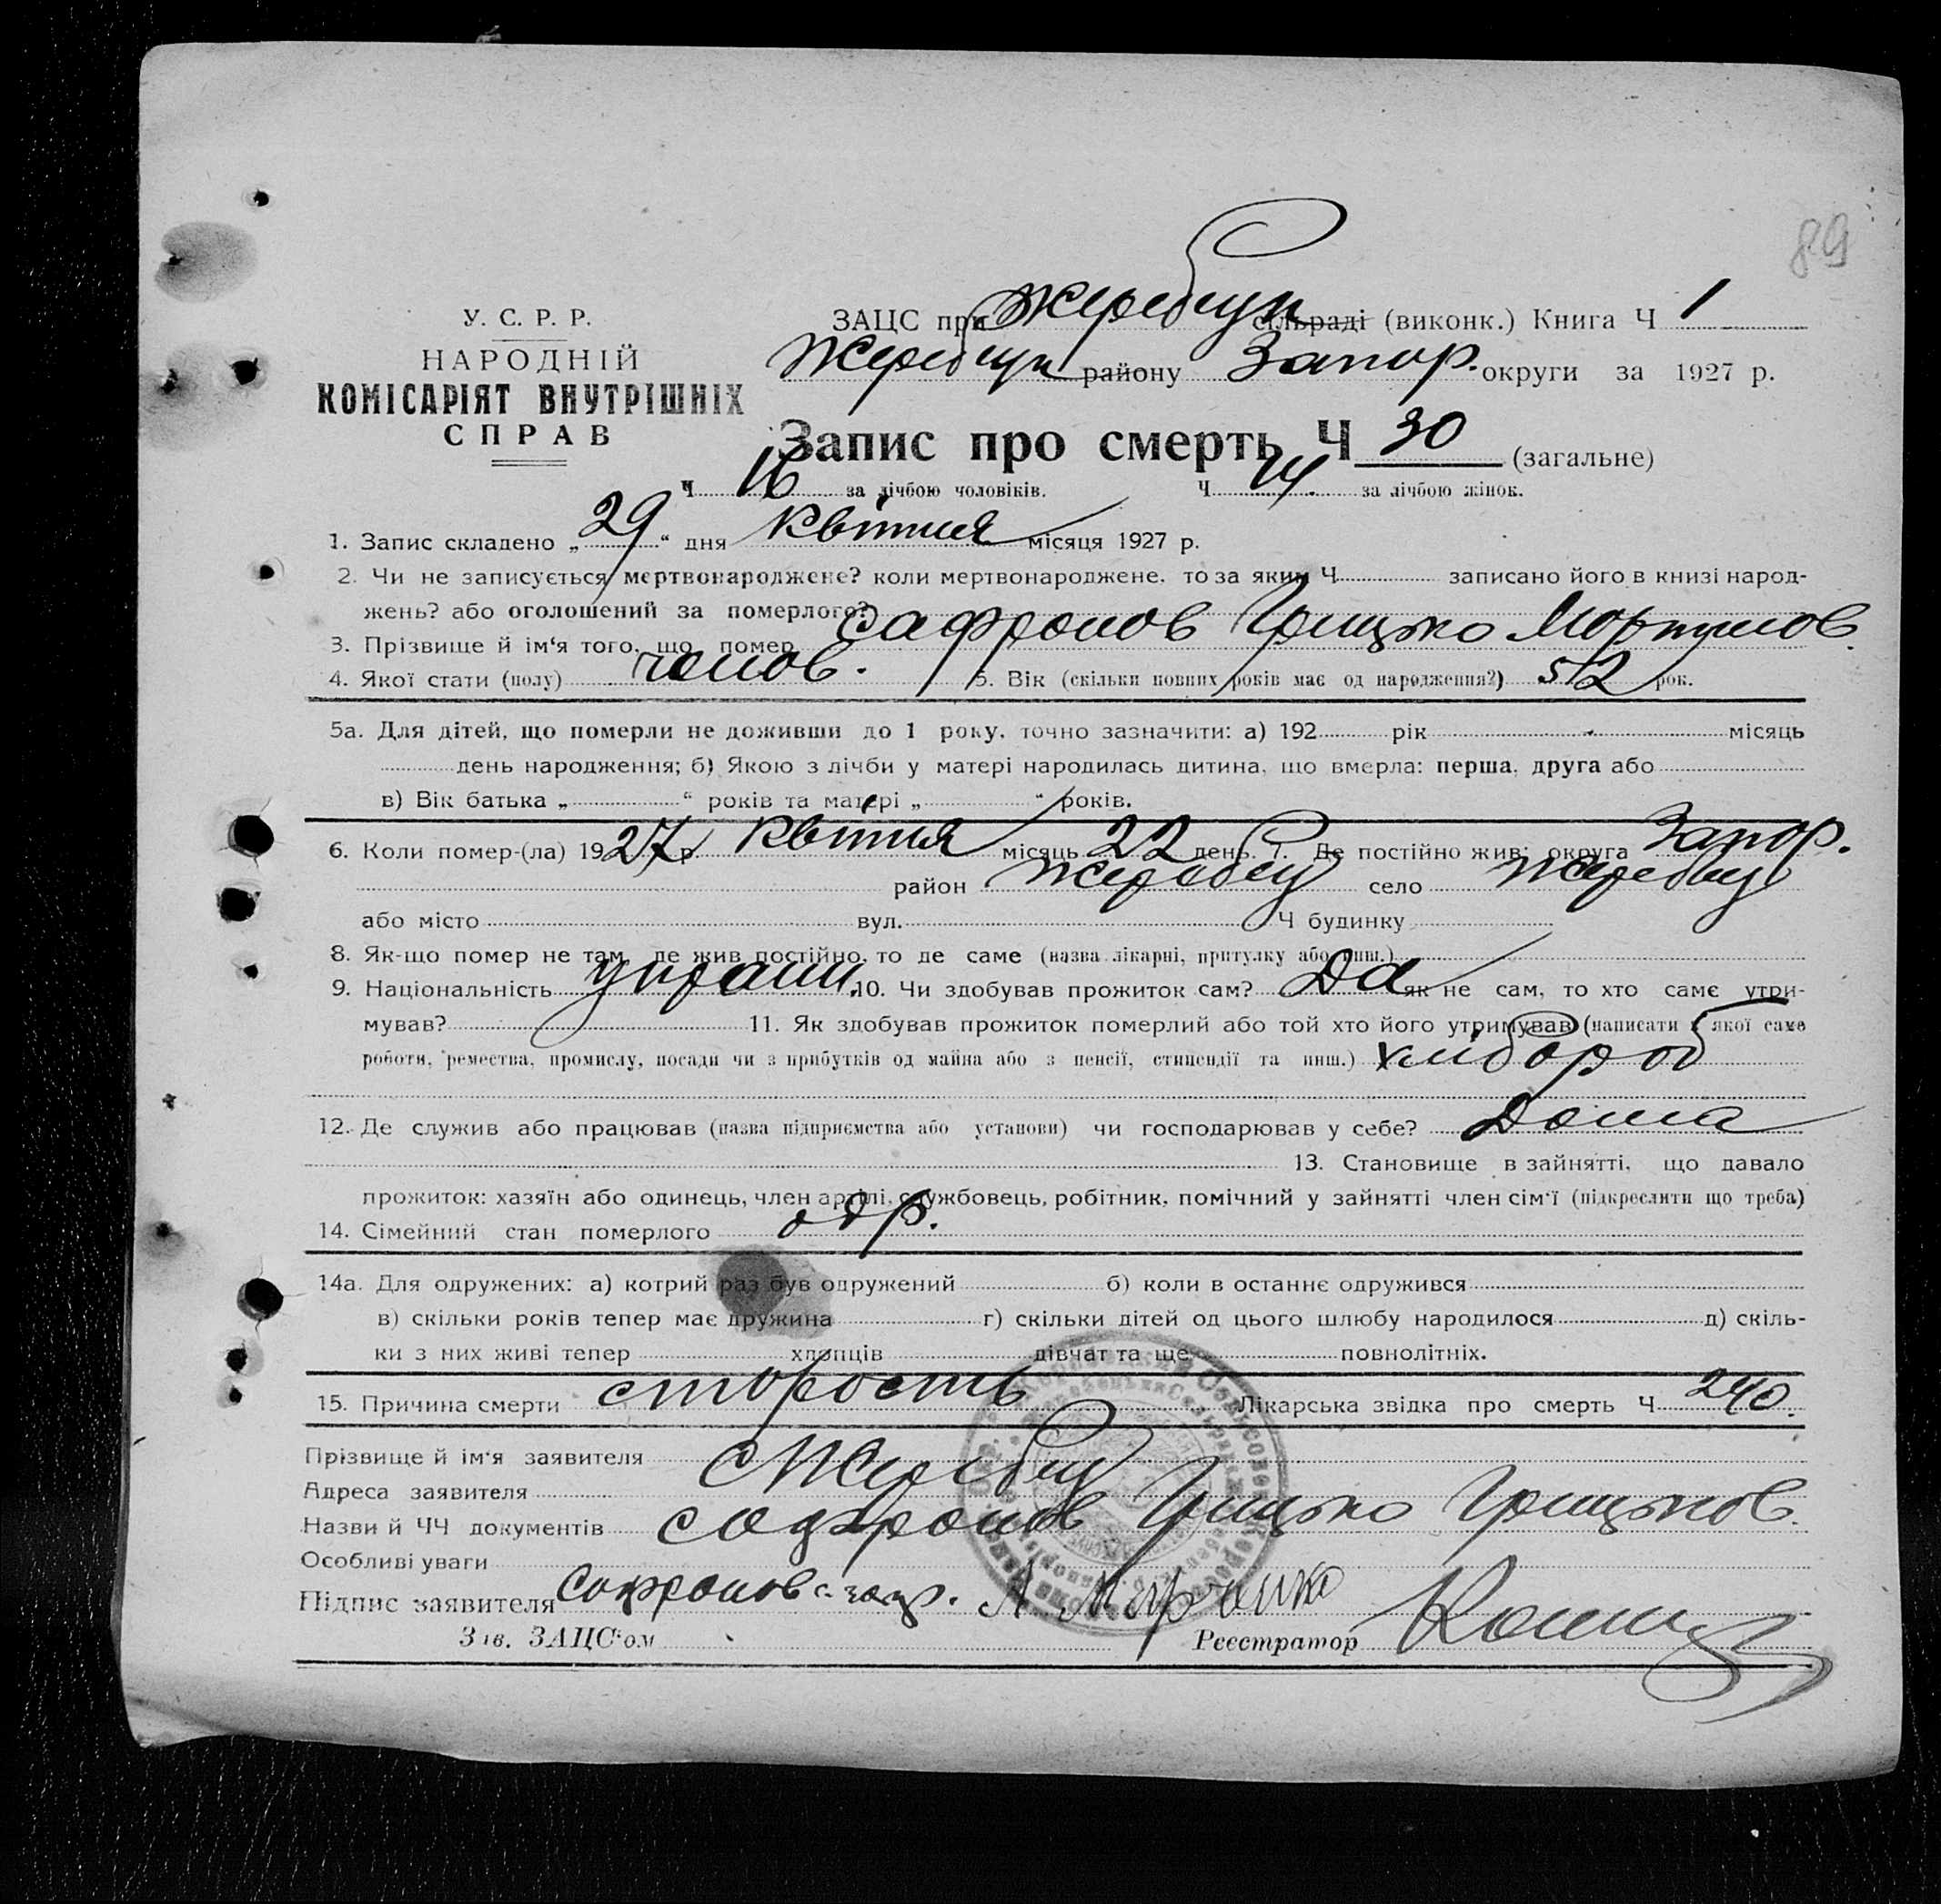 89
У. С. Р. Р.
НАРОДНІЙ
КОМІСАРІЯТ ВНУТРІШНІХ
СПРАВ
ЗАЦС при Жеребецк сільраді (виконк.) Книга Ч 1
Жеребецк району Запор. округи за 1927 р.
Запис про смерть Ч 30 (загальне)
Ч 16 за лічбою чоловіків. Ч 14. за лічбою жінок.
1. Запис складено „29“ дня Квітня місяця 1927 р.
2. Чи не записується мертвонароджене? коли мертвонароджене, то за яким Ч записано його в книзі народ-
жень? або оголошений за померлого?
3. Прізвище й ім‘я того, що помер Сафронов Грицько
4. Якої стати (полу) чолов. 5. Вік (скільки повних років має од народження?) 52 рок.
5а. Для дітей, що померли не доживши до 1 року, точно зазначити: а) 192 рік місяць
день народження; б) Якою з лічби у матері народилась дитина, що вмерла: перша, друга або
в) Вік батька „ “ років та матері „ “ років.
6. Коли помер-(ла) 1927 р. Квітня місяць 22 день. 7. Де постійно жив: округа Запор.
район Жеребец село Жеребец
або місто вул. Ч будинку
8. Як-що помер не там, де жив постійно, то де саме (назва лікарні, притулку або инш.)
9. Національність україн. 10. Чи здобував прожиток сам? Да як не сам, то хто саме утри-
мував? 11. Як здобував прожиток померлий або той хто його утримував (написати з якої саме
роботи, ремества, промислу, посади чи з прибутків од майна або з пенсії, стипендії та инш.) хлібороб
12. Де служив або працював (назва підприємства або установи) чи господарював у себе? Дома
13. Становище в зайнятті, що давало
прожиток: хазяїн або одинець, член артілі, службовець, робітник, помічний у зайнятті член сім‘ї (підкреслити що треба)
14. Сімейний стан померлого одр.
14а. Для одружених: а) котрий раз був одружений б) коли в останнє одружився
в) скільки років тепер має дружина г) скільки дітей од цього шлюбу народилося д) скіль-
ки з них живі тепер хлопців дівчат та ще повнолітніх.
15. Причина смерти старость Лікарська звідка про смерть Ч 240.
Прізвище й ім‘я заявителя
Адреса заявителя с Жеребец
Назви й ЧЧ документів Сафронов Грицько Грицьков.
Особливі уваги
Підпис заявителя Сафронов
Зав. ЗАЦС‘ом Реєстратор